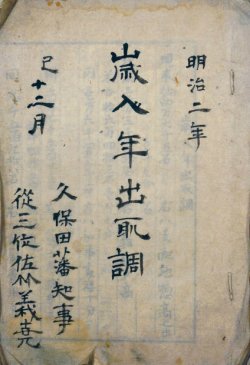 明治二年
歳入年出取調
巳十二月
久保田藩知事
從三位佐竹義尭